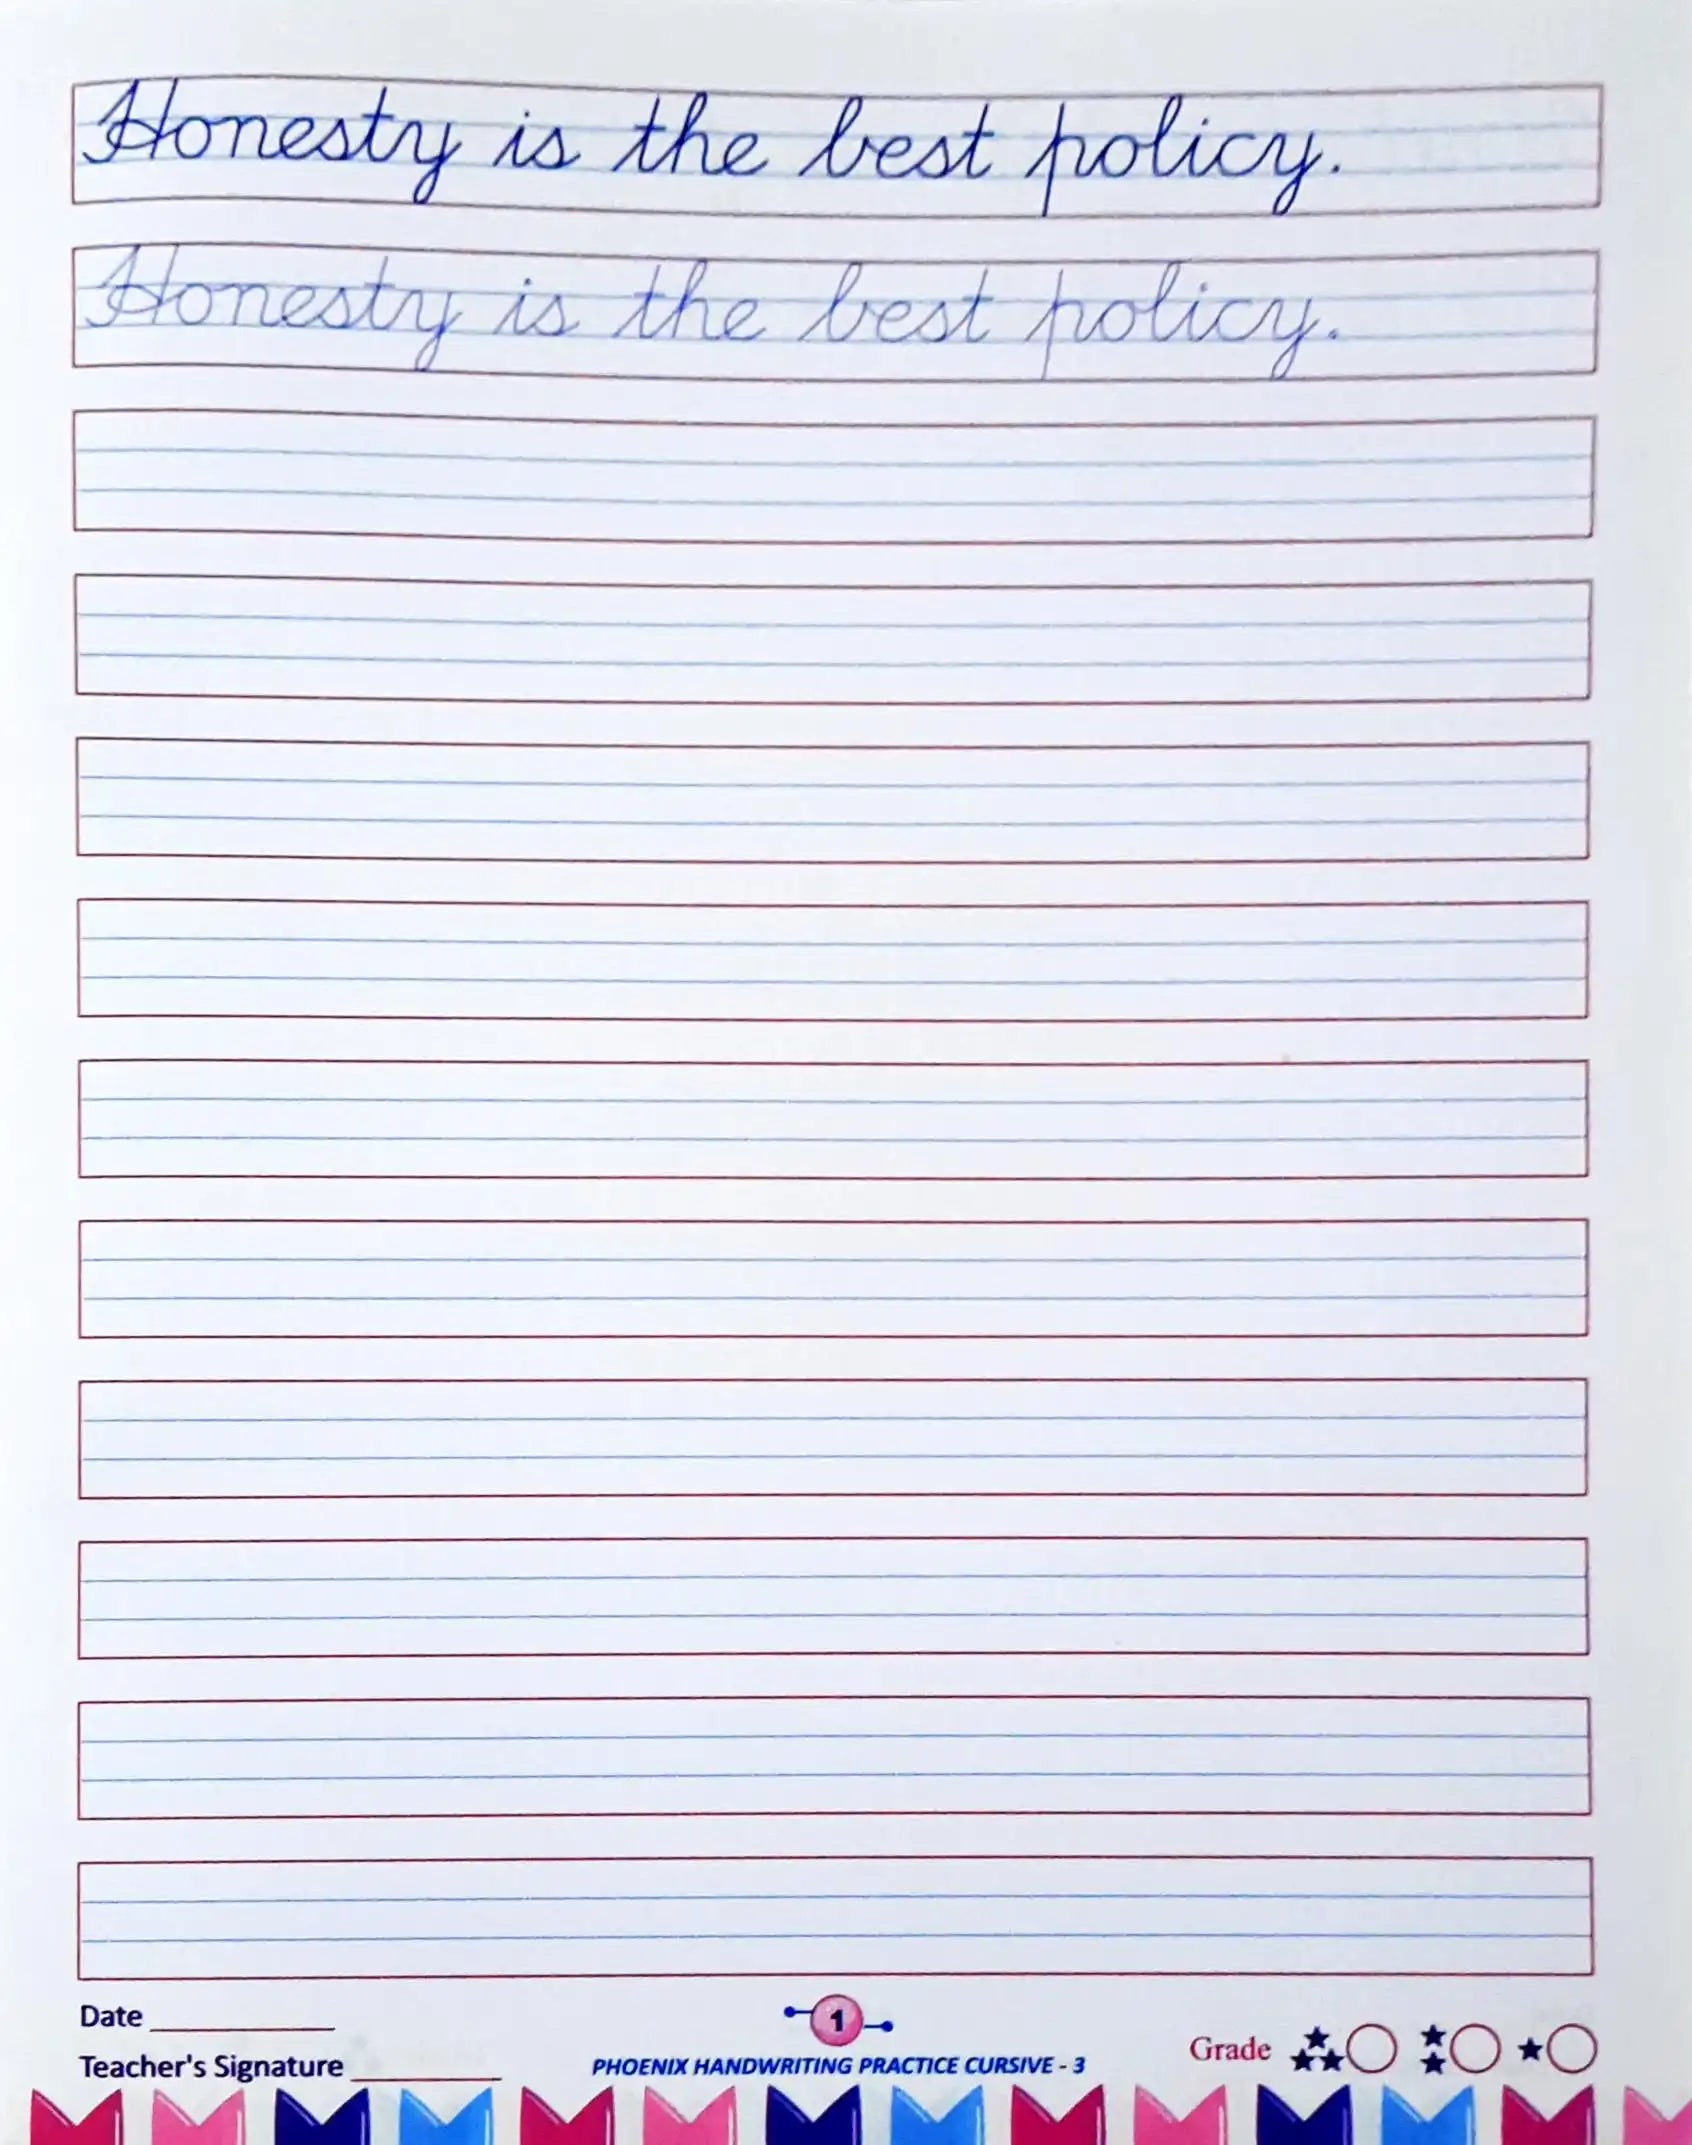 Honesty is the best policy.
Honesty is the best policy.
Date
1
Teacher's Signature
PHOENIX HANDWRITING PRACTICE CURSIVE - 3
Grade